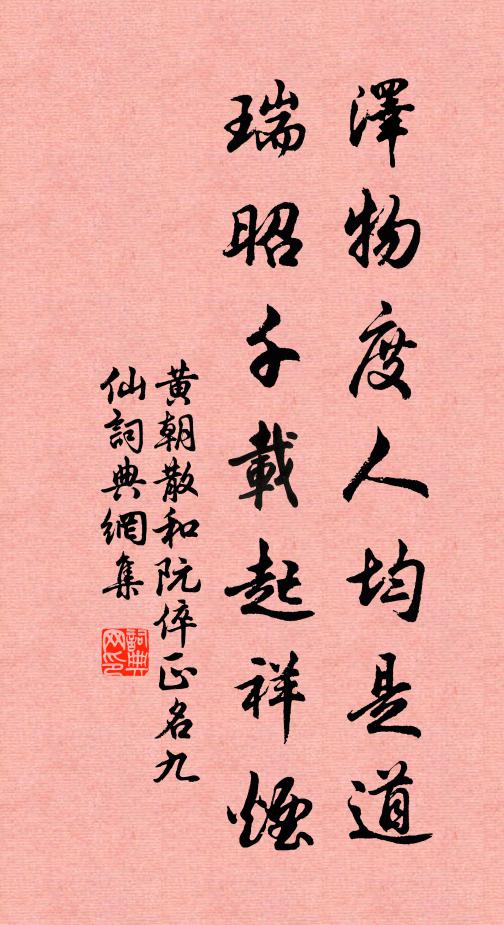 澤物度人均是道
瑞昭千載起祥煙
黄朝散和阮倅正名九
仙詞典網集
詞典
网印